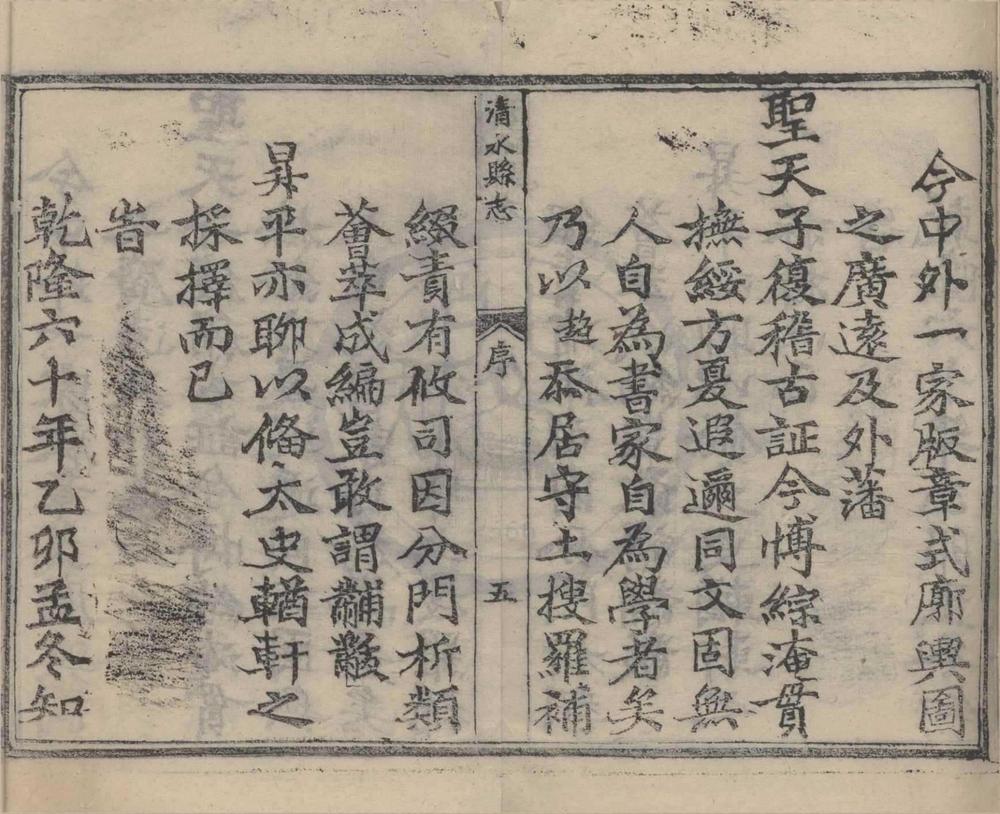 今中外一家版章式廓輿圖
之廣遠及外藩
聖天子復稽古証今博綜淹貫
撫綏方夏遐邇同文固無
人自為書家自為學者矣
乃以超忝居守土搜羅補
清水縣志
序
五
綴責有攸司因分門析類
薈萃成編豈敢謂黼黻
昇平亦聊以俻太史輶軒之
採擇而已
旹
乾隆六十年乙卯孟冬知